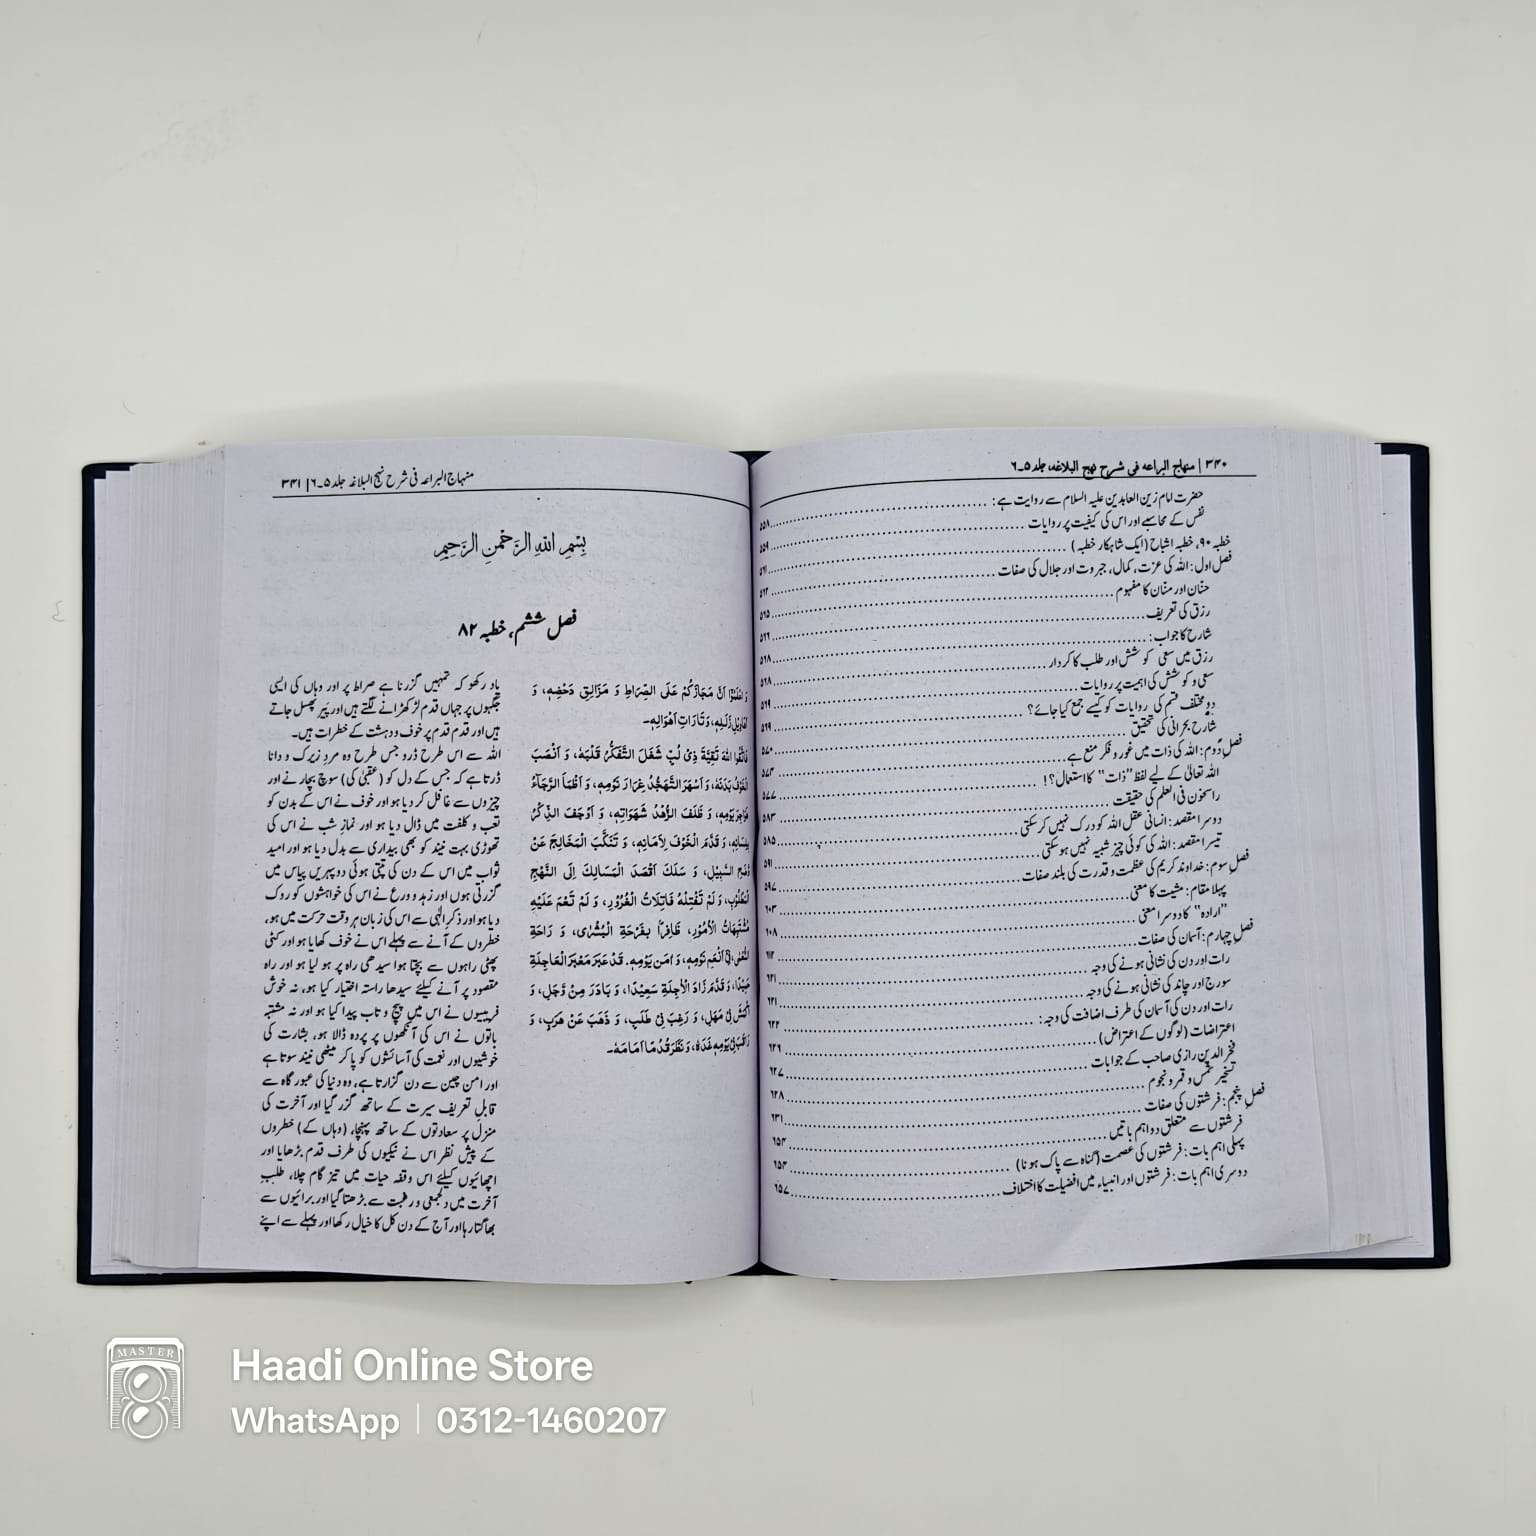 ۳۴۰ | منہاج البراعہ فی شرح نہج البلاغہ، جلد ۵۔۶
حضرت امام زین العابدین علیہ السلام سے روایت ہے: ۵۵۸
نفس کے محاسبے اور اس کی کیفیت پر روایات ۵۵۹
خطبہ ۹۰، خطبہ اشباح (ایک شاہکار خطبہ) ۵۶۱
فصل اول: اللہ کی عزت، کمال، جبروت اور جلال کی صفات ۵۶۲
حنّان اور منّان کا مفہوم ۵۶۵
رزق کی تعریف ۵۶۶
شارح کا جواب: ۵۶۸
رزق میں سعی کوشش اور طلب کا کردار ۵۶۸
سعی و کوشش کی اہمیت پر روایات ۵۶۹
دو مختلف قسم کی روایات کو کیسے جمع کیا جائے؟ ۵۶۹
شارح بحرانی کی تحقیق ۵۷۰
فصل دوم: اللہ کی ذات میں غور و فکر منع ہے ۵۷۳
اللہ تعالیٰ کے لیے لفظ "ذات" کا استعمال؟! ۵۷۷
راسخون فی العلم کی حقیقت ۵۸۳
دوسرا مقصد: انسانی عقل اللہ کو درک نہیں کر سکتی ۵۸۵
تیسرا مقصد: اللہ کی کوئی چیز شبیہ نہیں ہو سکتی ۵۹۱
فصل سوم: خداوند کریم کی عظمت و قدرت کی بلند صفات ۵۹۷
پہلا مقام: مشیت کا معنی ۶۰۳
"ارادہ" کا دوسرا معنی ۶۰۸
فصل چہارم: آسمان کی صفات ۶۱۲
رات اور دن کی نشانی ہونے کی وجہ ۶۲۱
سورج اور چاند کی نشانی ہونے کی وجہ ۶۲۱
رات اور دن کی آسمان کی طرف اضافت کی وجہ: ۶۲۲
اعتراضات (لوگوں کے اعتراض) ۶۲۶
فخر الدین رازی صاحب کے جوابات ۶۲۷
تسخیر شمس و قمر و نجوم ۶۲۸
فصل پنجم: فرشتوں کی صفات ۶۳۱
فرشتوں سے متعلق دو اہم باتیں ۶۵۳
پہلی اہم بات: فرشتوں کی عصمت (گناہ سے پاک ہونا) ۶۵۳
دوسری اہم بات: فرشتوں اور انبیاء میں افضیلت کا اختلاف ۶۵۷
منہاج البراعہ فی شرح نہج البلاغہ جلد ۵۔۶ | ۳۴۱
بِسْمِ اللهِ الرَّحْمٰنِ الرَّحِيْمِ
فصل ششم، خطبہ ۸۲
وَ اعْلَمُوْۤا اَنَّ مَجَازَكُمْ عَلَى الصِّرَاطِ وَ مَزَالِقِ دَحْضِهٖ، وَ
اَهَاوِيْلِ زَلَلِهٖ، وَ تَارَاتِ اَهْوَالِهٖ۔
فَاتَّقُوا اللهَ تَقِيَّةَ ذِيْ لُبٍّ شَغَلَ التَّفَكُّرُ قَلْبَهٗ، وَ اَنْصَبَ
الْخَوْفُ بَدَنَهٗ، وَ اَسْهَرَ التَّهَجُّدُ غِرَارَ نَوْمِهٖ، وَ اَظْمَاَ الرَّجَآءُ
هَوَاجِرَ يَوْمِهٖ، وَ ظَلَفَ الزُّهْدُ شَهَوَاتِهٖ، وَ اَوْجَفَ الذِّكْرُ
بِلِسَانِهٖ، وَ قَدَّمَ الْخَوْفَ لِاَمَانِهٖ، وَ تَنَكَّبَ الْمَخَالِجَ عَنْ
وَضَحِ السَّبِيْلِ، وَ سَلَكَ اَقْصَدَ الْمَسَالِكَ اِلَى النَّهْجِ
الْمَطْلُوْبِ، وَ لَمْ تَفْتِلْهُ فَاتِلَاتُ الْغُرُوْرِ، وَ لَمْ تَعْمَ عَلَيْهِ
مُشْتَبِهَاتُ الْاُمُوْرِ، ظَافِرًۢا بِفَرْحَةِ الْبُشْرٰى، وَ رَاحَةِ
النُّعْمٰى، فِيْۤ اَنْعَمِ نَوْمِهٖ، وَ اٰمَنِ يَوْمِهٖ. قَدْ عَبَرَ مَعْبَرَ الْعَاجِلَةِ
حَمِيْدًا، وَ قَدَّمَ زَادَ الْاٰجِلَةِ سَعِيْدًا، وَ بَادَرَ مِنْ وَّجَلٍ، وَ
اَكْمَشَ فِيْ مَهَلٍ، وَ رَغِبَ فِيْ طَلَبٍ، وَ ذَهَبَ عَنْ هَرَبٍ، وَ
رَاقَبَ فِيْ يَوْمِهٖ غَدَهٗ، وَ نَظَرَ قُدُمًا اَمَامَهٗ۔
یاد رکھو کہ تمہیں گزرنا ہے صراط پر اور وہاں کی ایسی
جگہوں پر جہاں قدم لڑکھڑانے لگتے ہیں اور پَیر پھسل جاتے
ہیں اور قدم قدم پر خوف و دہشت کے خطرات ہیں۔
اللہ سے اس طرح ڈرو جس طرح وہ مردِ زیرک و دانا
ڈرتا ہے کہ جس کے دل کو (عقبیٰ کی) سوچ بچار نے اور
چیزوں سے غافل کر دیا ہو اور خوف نے اس کے بدن کو
تعب و کلفت میں ڈال دیا ہو اور نمازِ شب نے اس کی
تھوڑی بہت نیند کو بھی بیداری سے بدل دیا ہو اور امید
ثواب میں اس کے دن کی تپتی ہوئی دوپہریں پیاس میں
گزرتی ہوں اور زہد و ورع نے اس کی خواہشوں کو روک
دیا ہو اور ذکرِ الٰہی سے اس کی زبان ہر وقت حرکت میں ہو،
خطروں کے آنے سے پہلے اس نے خوف کھایا ہو اور کٹی
پھٹی راہوں سے بچتا ہوا سیدھی راہ پر ہو لیا ہو اور راہ
مقصود پر آنے کیلئے سیدھا راستہ اختیار کیا ہو، نہ خوش
فریبیوں نے اس میں پیچ و تاب پیدا کیا ہو اور نہ مشتبہ
باتوں نے اس کی آنکھوں پر پردہ ڈالا ہو، بشارت کی
خوشیوں اور نعمت کی آسائشوں کو پا کر میٹھی نیند سوتا ہے
اور امن چین سے دن گزارتا ہے، وہ دنیا کی عبور گاہ سے
قابل تعریف سیرت کے ساتھ گزر گیا اور آخرت کی
منزل پر سعادتوں کے ساتھ پہنچا، (وہاں کے) خطروں
کے پیشِ نظر اس نے نیکیوں کی طرف قدم بڑھایا اور
اچھائیوں کیلئے اس وقفہ حیات میں تیز گام چلا، طلبِ
آخرت میں دلجمعی و رغبت سے بڑھتا گیا اور برائیوں سے
بھاگتا رہا اور آج کے دن کل کا خیال رکھا اور پہلے سے اپنے
MASTER
Haadi Online Store
WhatsApp | 0312-1460207